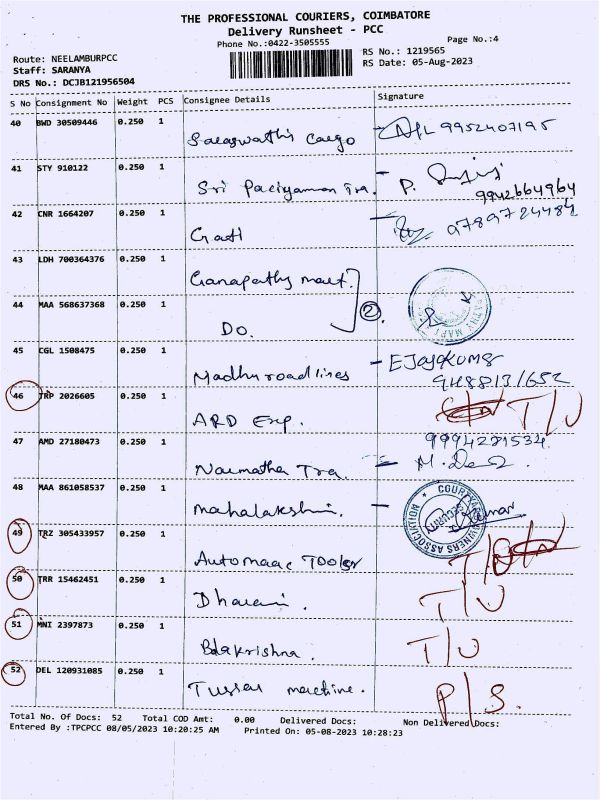 THE PROFESSIONAL COURIERS, COIMBATORE
Delivery Runsheet - PCC
Phone No.:0422-3505555
Page No.:4
Route: NEELAMBURPCC
Staff: SARANYA
DRS No.: DCJB121956504
RS No.: 1219565
RS Date: 05-Aug-2023
S No Consignment No Weight PCS Consignee Details Signature
40 BWD 30509446 0.250 1
Saraswathi Cargo 9952407195
41 STY 910122 0.250 1
Sri Pariyamman Tra. P.
9942664964
42 CNR 1664207 0.250 1
Gati 9789724484
43 LDH 700364376 0.250 1
Ganapathy mart.
2
44 MAA 568637368 0.250 1
Do.
45 CGL 1508475 0.250 1
Madhu roadlines EJayakumar
9488131652
46 TRP 2026605 0.250 1
ARD Exp. T/U
47 AMD 27180473 0.250 1 9994281534
Narmatha Tra. M.
48 MAA 861058537 0.250 1
mahalakshmi.
ASSOCIATION
SECURITY
49 TRZ 305433957 0.250 1
Automaac Tools T/U
50 TRR 15462451 0.250 1
Dharani. T/U
51 MNI 2397873 0.250 1
Balakrishna. T/U
52 DEL 120931085 0.250 1
machine. P/S.
Total No. Of Docs: 52 Total COD Amt: 0.00 Delivered Docs: Non Delivered Docs:
Entered By :TPCPCC 08/05/2023 10:20:25 AM Printed On: 05-08-2023 10:28:23